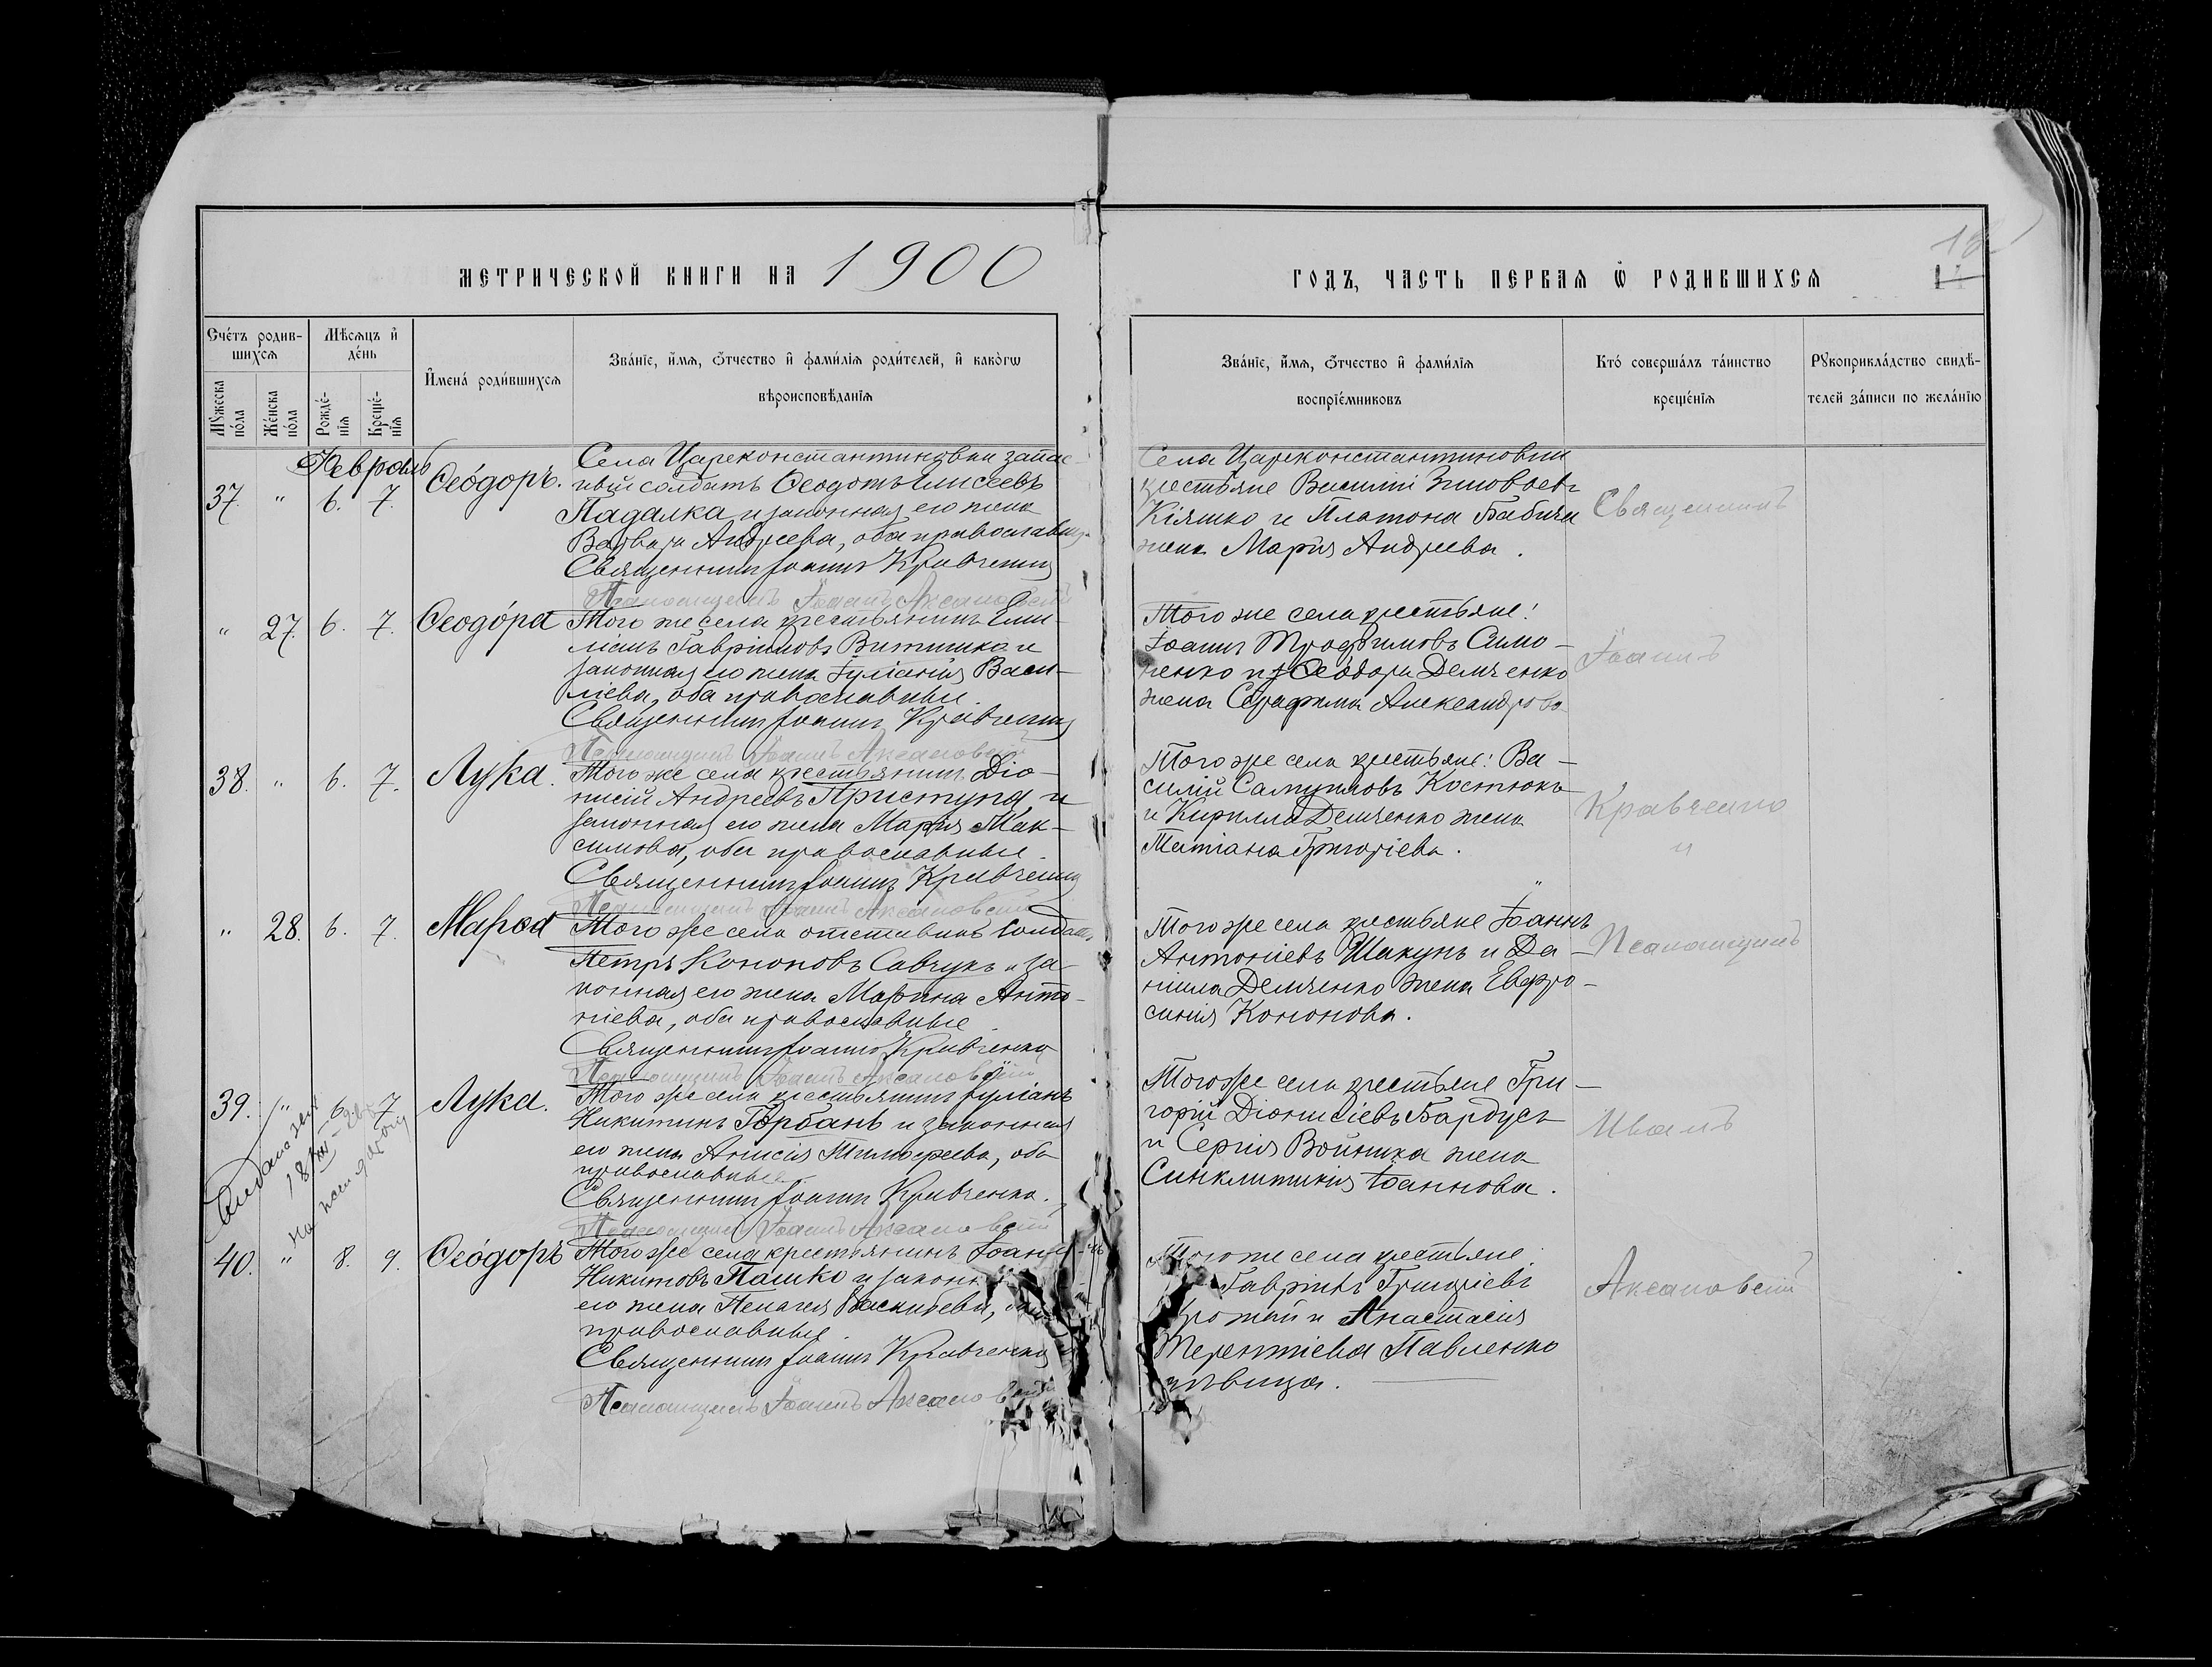 МЕТРИЧЕСКОЙ КНИГИ НА 1900
ГОДЪ, ЧАСТЬ ПЕРВАѦ Ѡ҆ РОДИВШИХСѦ
Сче́тъ родив-
шихсѧ
Мѣсѧцъ и҆
де́нь
И҆мена́ роди́вшихсѧ
Зва́нїе, и҆́мѧ, ѻ҆́тчество и҆ фами́лїѧ роди́телей, и҆ како́гѡ
вѣроисповѣ́данїѧ
Мꙋ́жеска
по́ла
Же́нска
по́ла
Рожде́-
нїѧ
Креще́-
нїѧ
Зва́нїе, и҆́мѧ, ѻ҆́тчество и҆ фами́лїѧ
воспрїе́мниковъ
Кто̀ соверша́лъ та́инство
креще́нїѧ
Рꙋкоприкла́дство свидѣ́-
телей за́писи по жела́нїю
Февраль
37. " 6. 7. Ѳео́доръ.
Села Цареконстантиновки запас
ный солдатъ Ѳеодотъ Елисеевъ
Падалка и законная его жена
Варвара Андреева, оба православные
Священникъ Іоаннъ Кравченко
Псаломщикъ Іоаннъ Аксановскій
Села Цареконстантиновки
крестьяне Василій Зиновьевъ
Кіяшко и Платона Бабича
жена Марія Андреева.
" 27. 6. 7. Ѳеодо́ра
Того же села крестьянинъ Еми-
ліанъ Гавріиловъ Витишко и
законная его жена Іуліанія Васи-
ліева, оба православные.
Священникъ Іоаннъ Кравченко
Псаломщикъ Іоаннъ Аксановскій
Того же села крестьяне:
Іоаннъ Трофимовъ Симо-
ненко и Ѳеодора Демченко
жена Серафима Александрова
38. " 6. 7. Лука.
Того же села крестьянинъ Діо-
нисій Андреевъ Приступа и
законная его жена Марія Мак-
симова, оба православные.
Священникъ Іоаннъ Кравченко
Псаломщикъ Іоаннъ Аксановскій
Того же села крестьяне: Ва-
силій Самуиловъ Костюкъ
и Кирилла Демченко жена
Татіана Григоріева.
" 28. 6. 7. Марѳа
Того же села отставной солдатъ
Петръ Кононовъ Савчукъ и за-
конная его жена Марина Анто-
ніева, оба православные.
Священникъ Іоаннъ Кравченко
Псаломщикъ Іоаннъ Аксановскій
Того же села крестьяне Іоаннъ
Антоніевъ Шакунъ и Да-
ніила Демченко жена Евфро-
синія Кононова.
39. " 6. 7 Лука.
Того же села крестьянинъ Іуліанъ
Никитинъ Горбань и законная
его жена Анисія Тимофеева, оба
православные.
Священникъ Іоаннъ Кравченко.
Псаломщикъ Іоаннъ Аксановскій
Того же села крестьяне Гри-
горій Діонисіевъ Бардусъ
и Сергія Войника жена
Синклитикія Іоаннова.
40. " 8. 9. Ѳео́доръ
Того же села крестьянинъ Іоаннъ
Никитовъ Пашко и законн
его жена Пелагея Васильева,
православные.
Священникъ Іоаннъ Кравченко
Псаломщикъ Іоаннъ Аксановскій
Того же села крестьяне:
Гавріилъ Григоріевъ
и Анастасія
Терентіева Павленко
дѣвица.
Священникъ
Іоаннъ
Кравченко
и
Псаломщикъ
Иванъ
Аксановскій